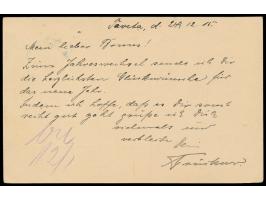 Taveta, d 28.12.15
Mein lieber
Zum Jahreswechsel sende ich Dir
die herzlichsten Glückwünsche für
das neue Jahr.
Indem ich hoffe, daß es Dir sonst
recht gut geht grüße ich Dich
vielmals und
verbleibe Dein